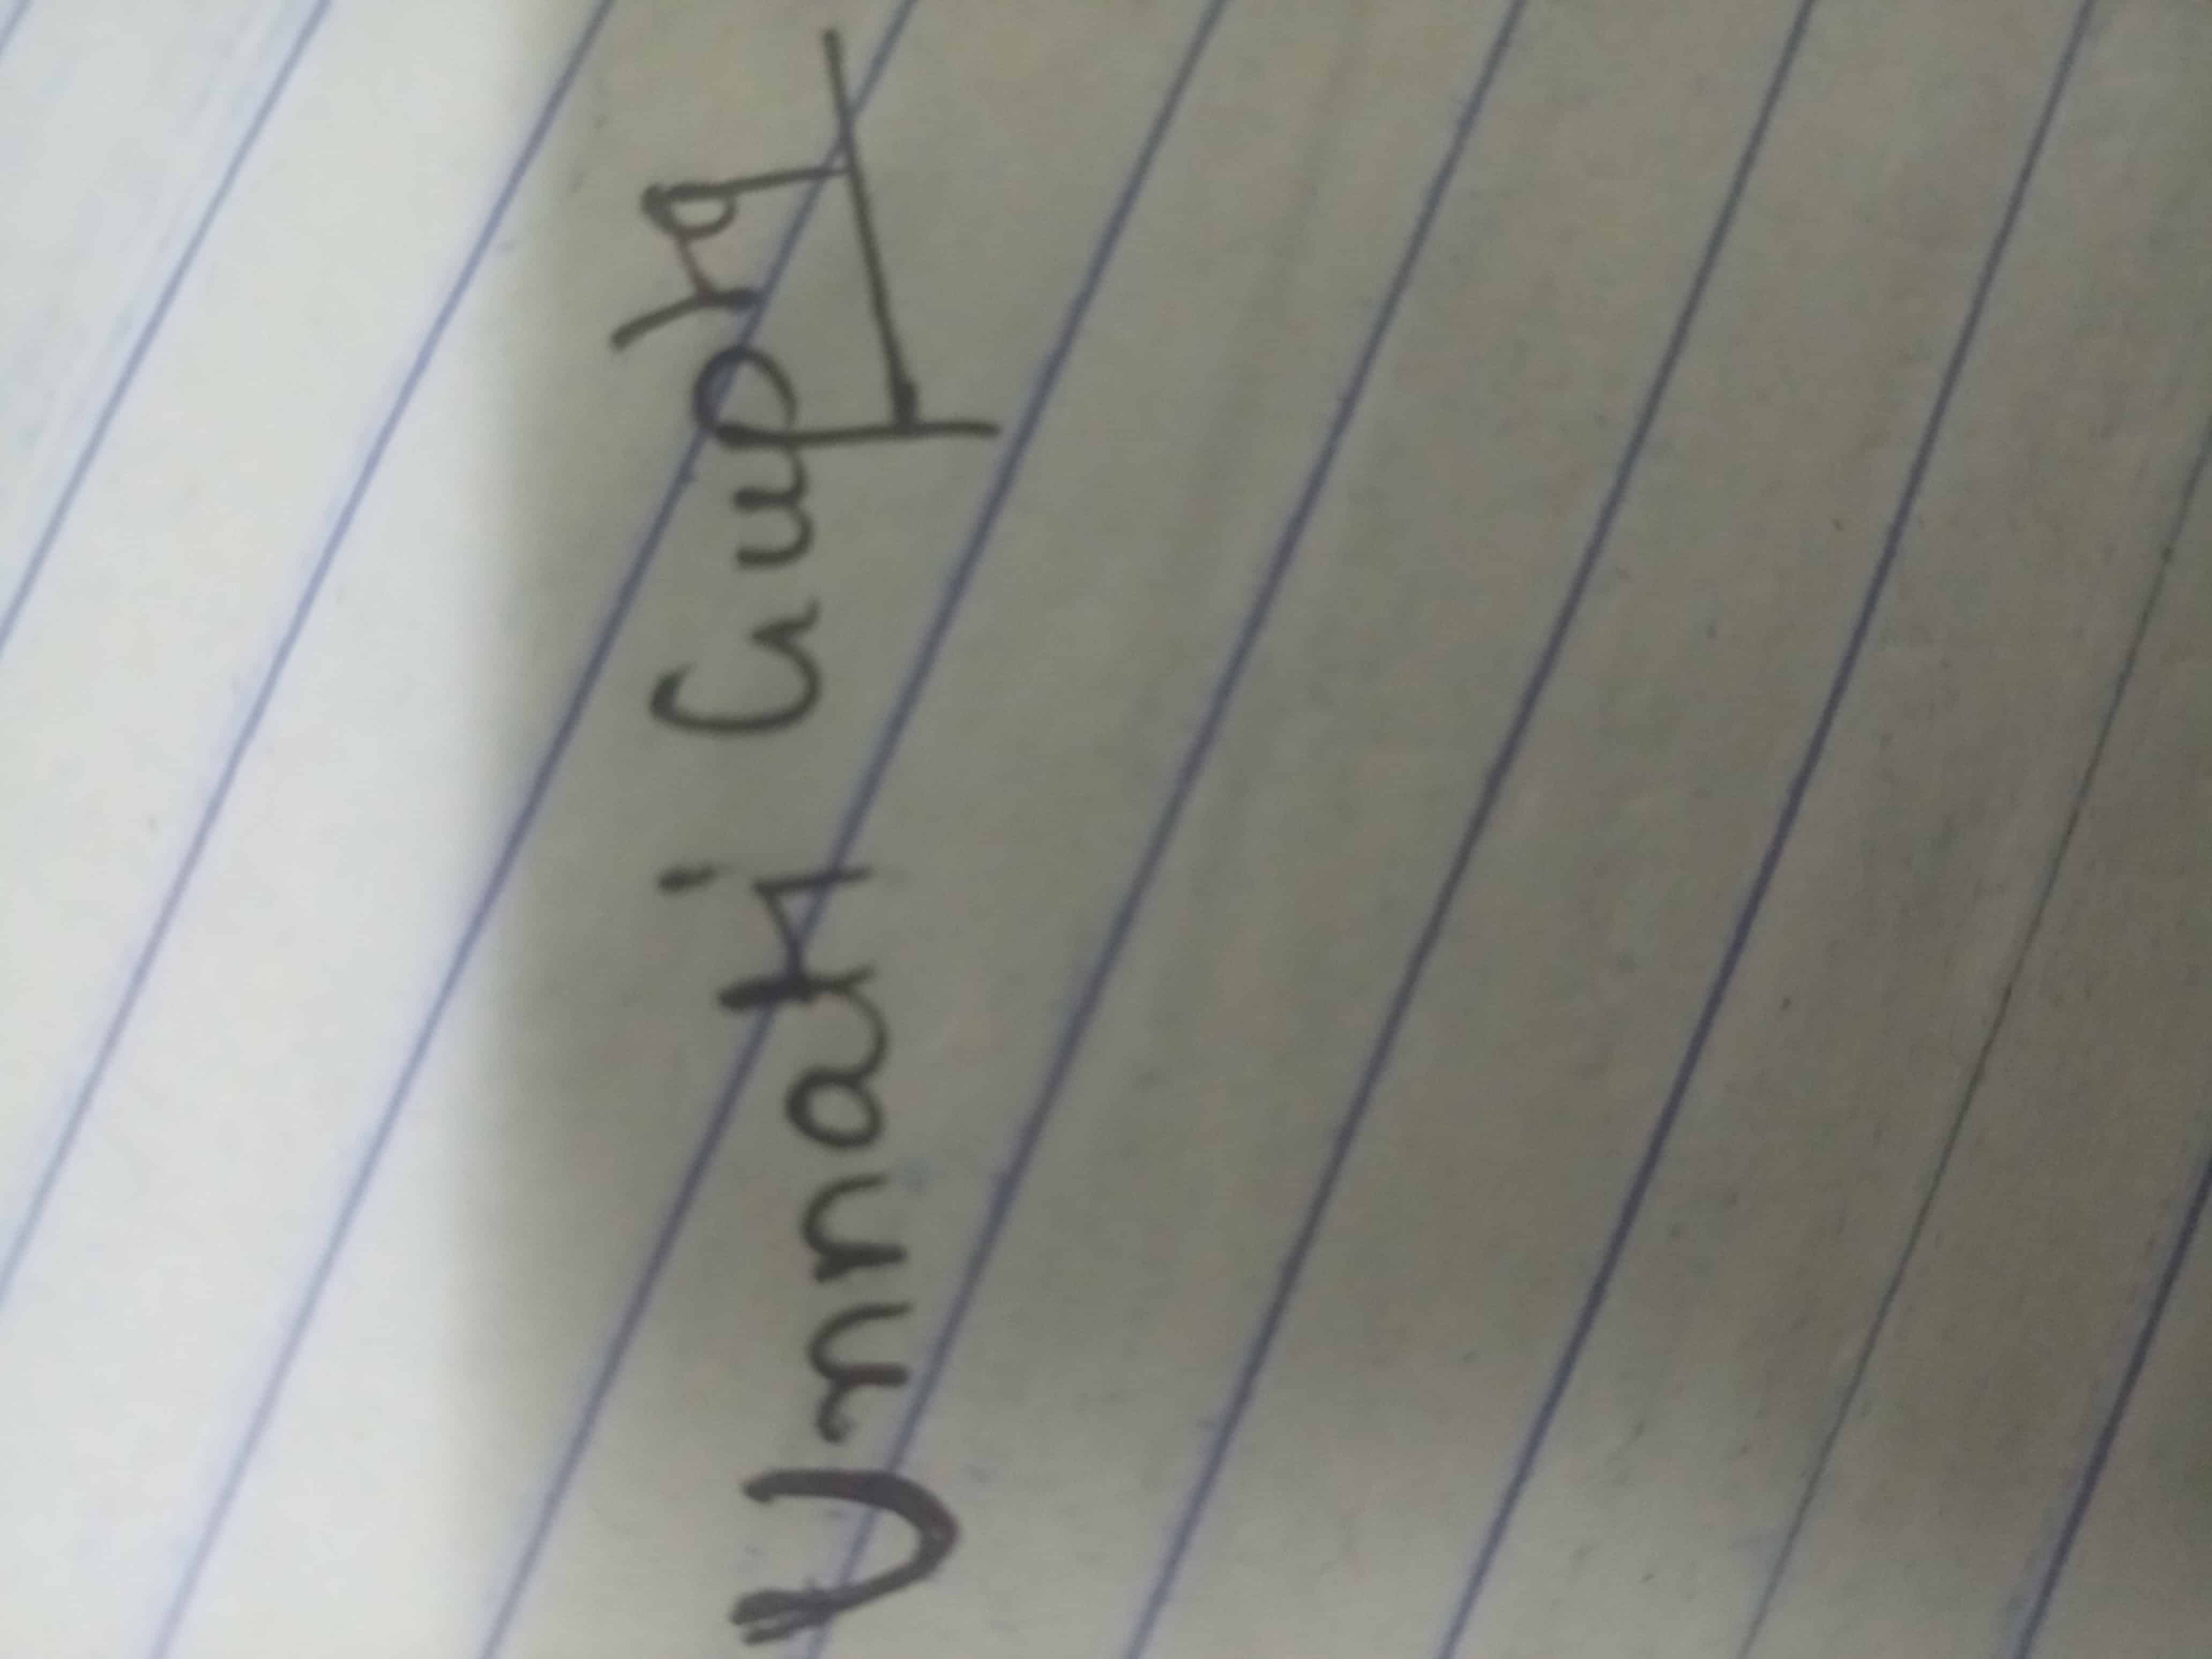 Unnati Gupta